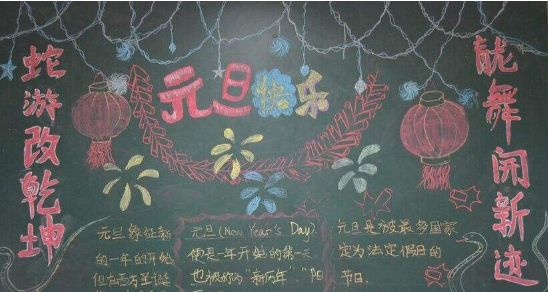 元旦快乐
蛇游改乾坤
龙舞开新迹
元旦象征新
的一年的开始
但在西方圣诞
元旦(New Year's Day)
便是一年开始的第一
也被称为"新历年""阳
元旦是被最多国家
定为法定假日的
节日。